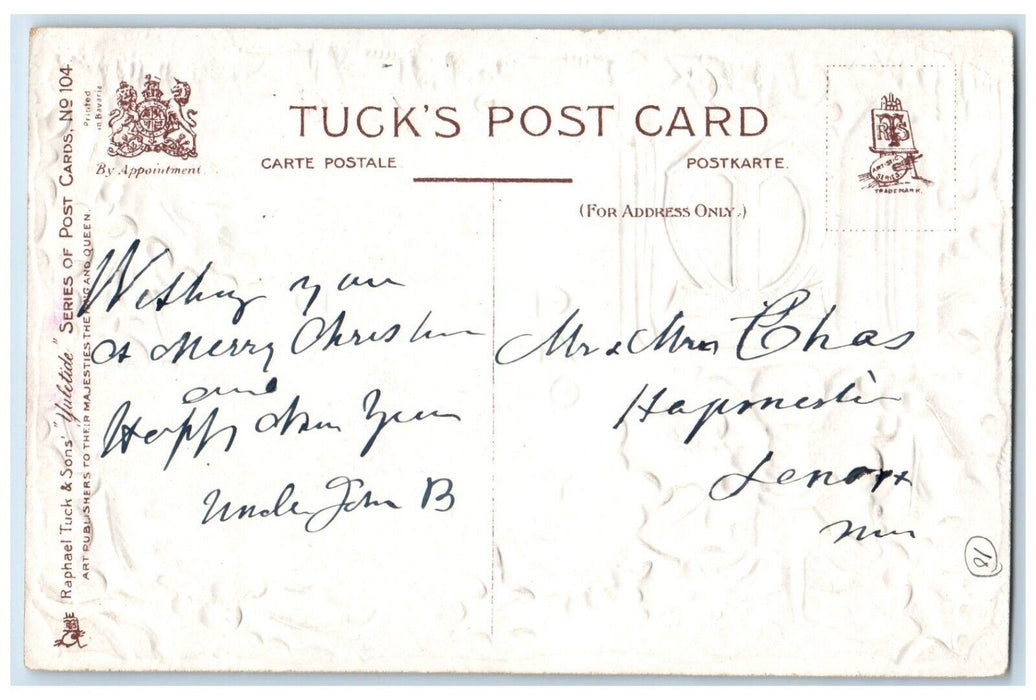 TUCK'S POST CARD
CARTE POSTALE
POSTKARTE.
(FOR ADDRESS ONLY.)
By Appointment
Printed
in Bavaria
Raphael Tuck & Sons' "Yuletide" Series of Post Cards, No 104.
ART PUBLISHERS TO THEIR MAJESTIES THE KING AND QUEEN.
RTS
ARTISTIC
SERIES
TRADE MARK.
Wishing you
A Merry Christmas
and
Happy New Year
Uncle John B
Mr & Mrs Chas
Lenox